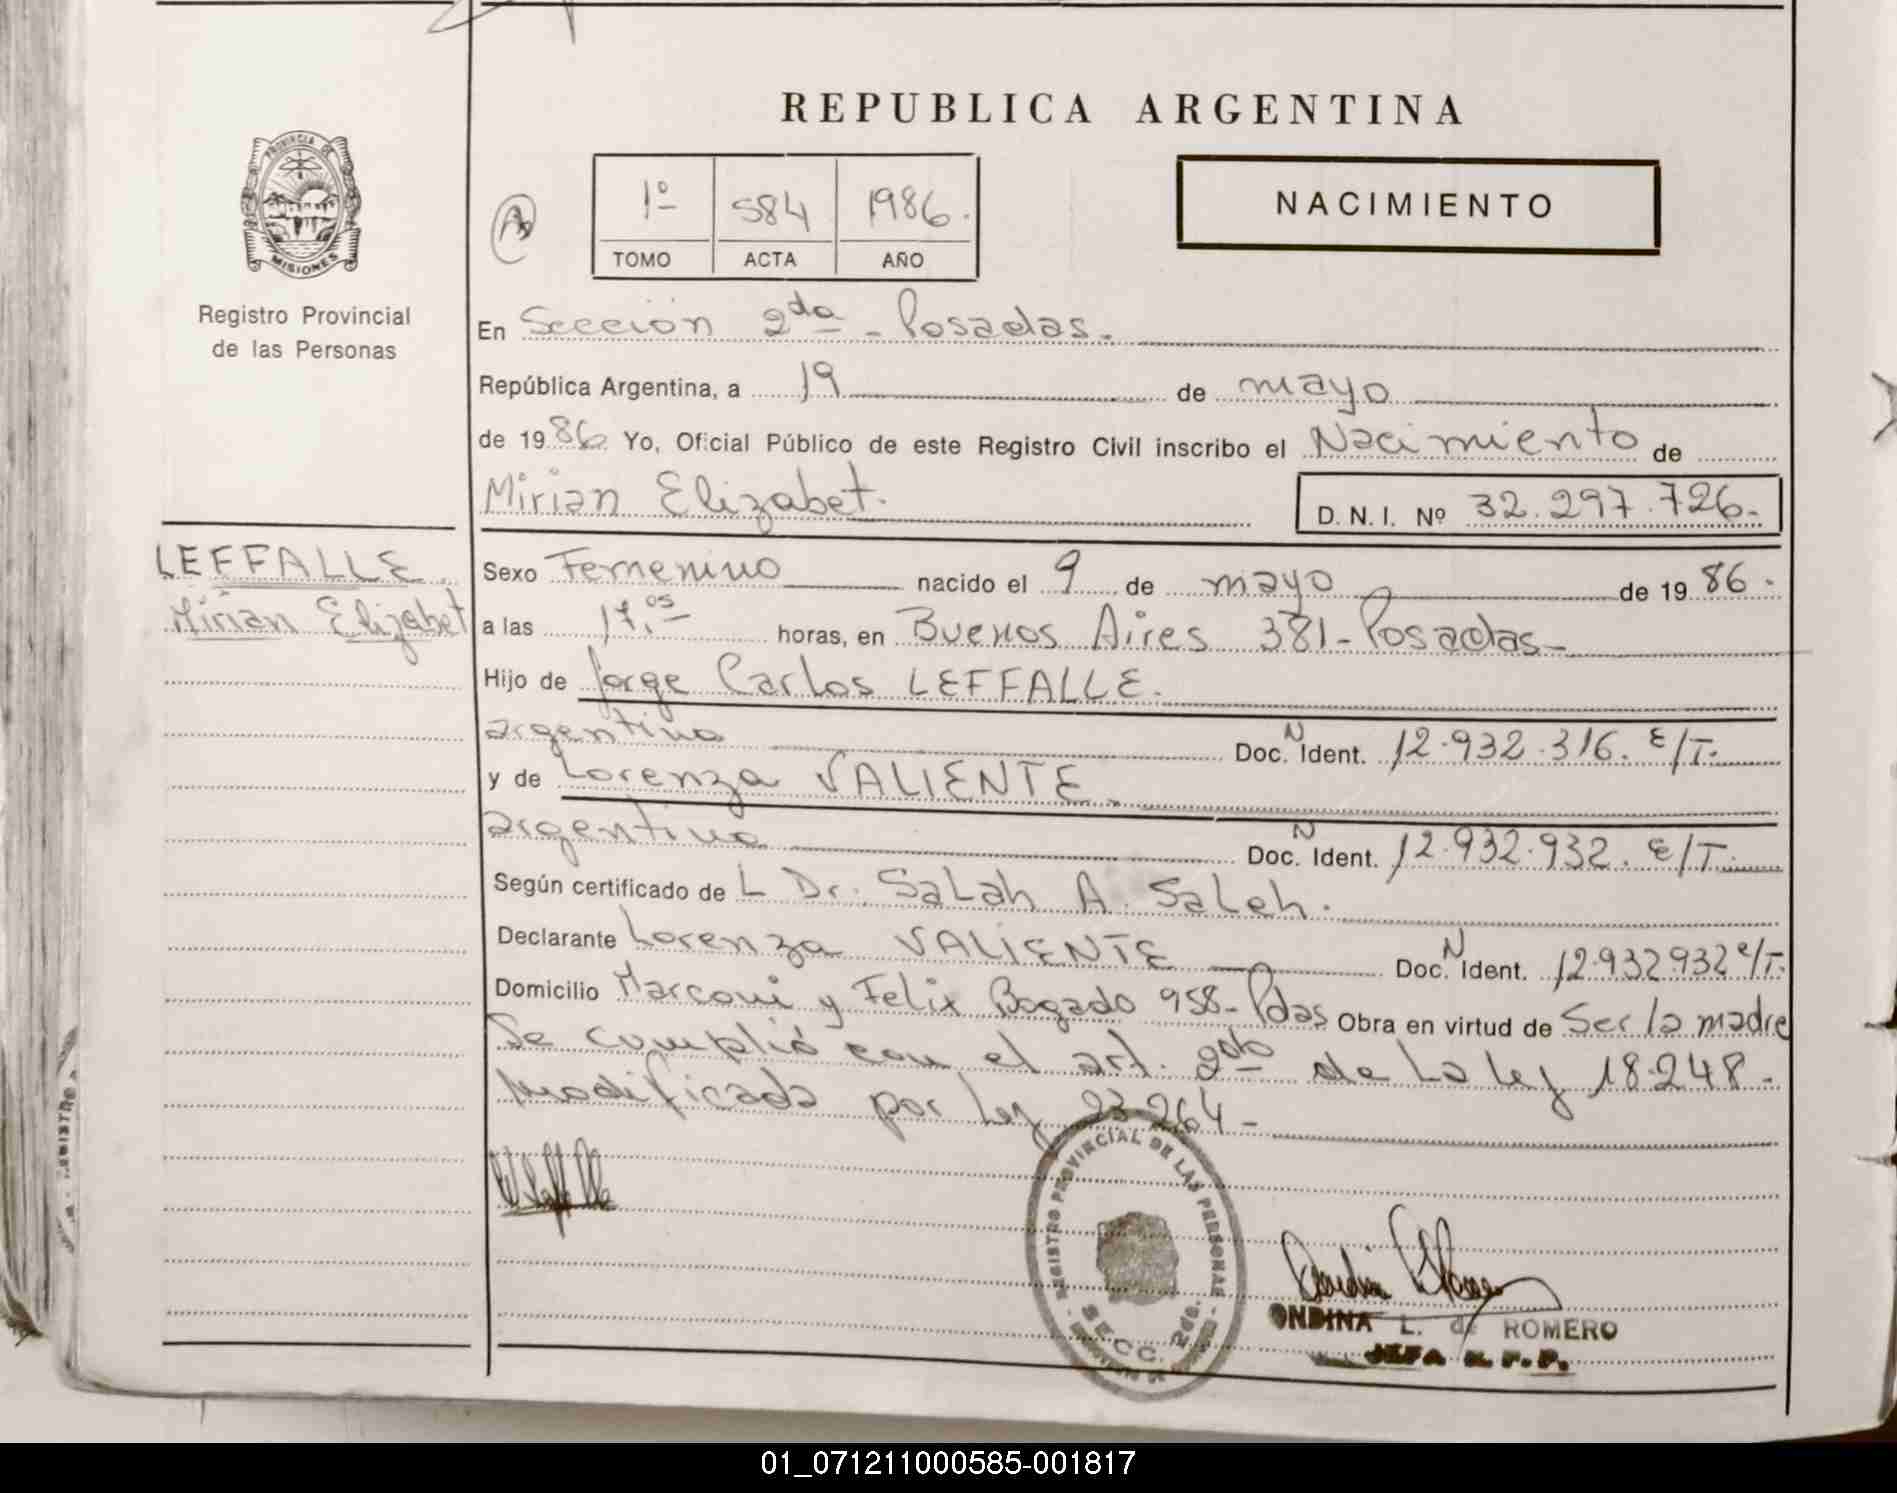 REPUBLICA ARGENTINA
PROVINCIA DE
MISIONES
Registro Provincial
de las Personas
1º 584 1986.
TOMO ACTA AÑO
NACIMIENTO
En Sección 2da - Posadas.
República Argentina, a 19 de mayo
de 1986 Yo, Oficial Público de este Registro Civil inscribo el Nacimiento de
Mirian Elizabet. D. N. I. Nº 32.297.726.-
LEFFALLE
Mirian Elizabet
Sexo Femenino nacido el 9 de mayo de 1986.
a las 17,05 horas, en Buenos Aires 381 - Posadas -
Hijo de Jorge Carlos LEFFALLE.
argentino Doc. N Ident. 12.932.316. E/T.
y de Lorenza VALIENTE.
argentina Doc. N Ident. 12.932.932. E/T.
Según certificado de L Dr. Salah A. Saleh.
Declarante Lorenza VALIENTE Doc. N Ident. 12.932.932 E/T.
Domicilio Marconi y Felix Bogado 958 - Pdas Obra en virtud de Ser la madre
Se cumplió con el art. 2do de La ley 18.248 -
modificada por Ley 23264 -
REGISTRO PROVINCIAL DE LAS PERSONAS
SECC. 2da.
ONDINA L. de ROMERO
JEFA R. P. P.
01_071211000585-001817